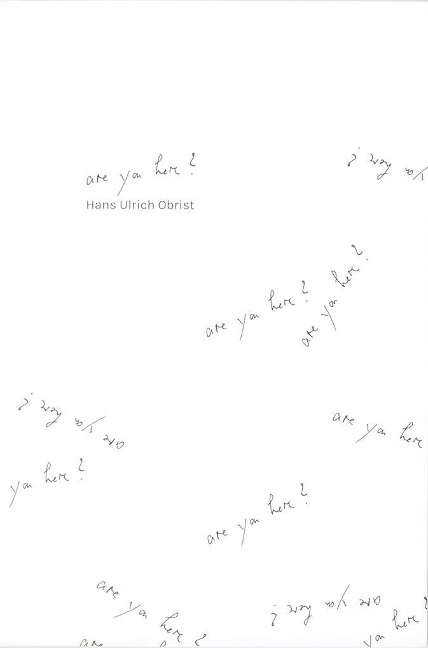 are you here?
Hans Ulrich Obrist
you here?
are you here?
are you here?
are you here?
are you here
you here?
are you here?
are you here?
are you here?
you here?
are